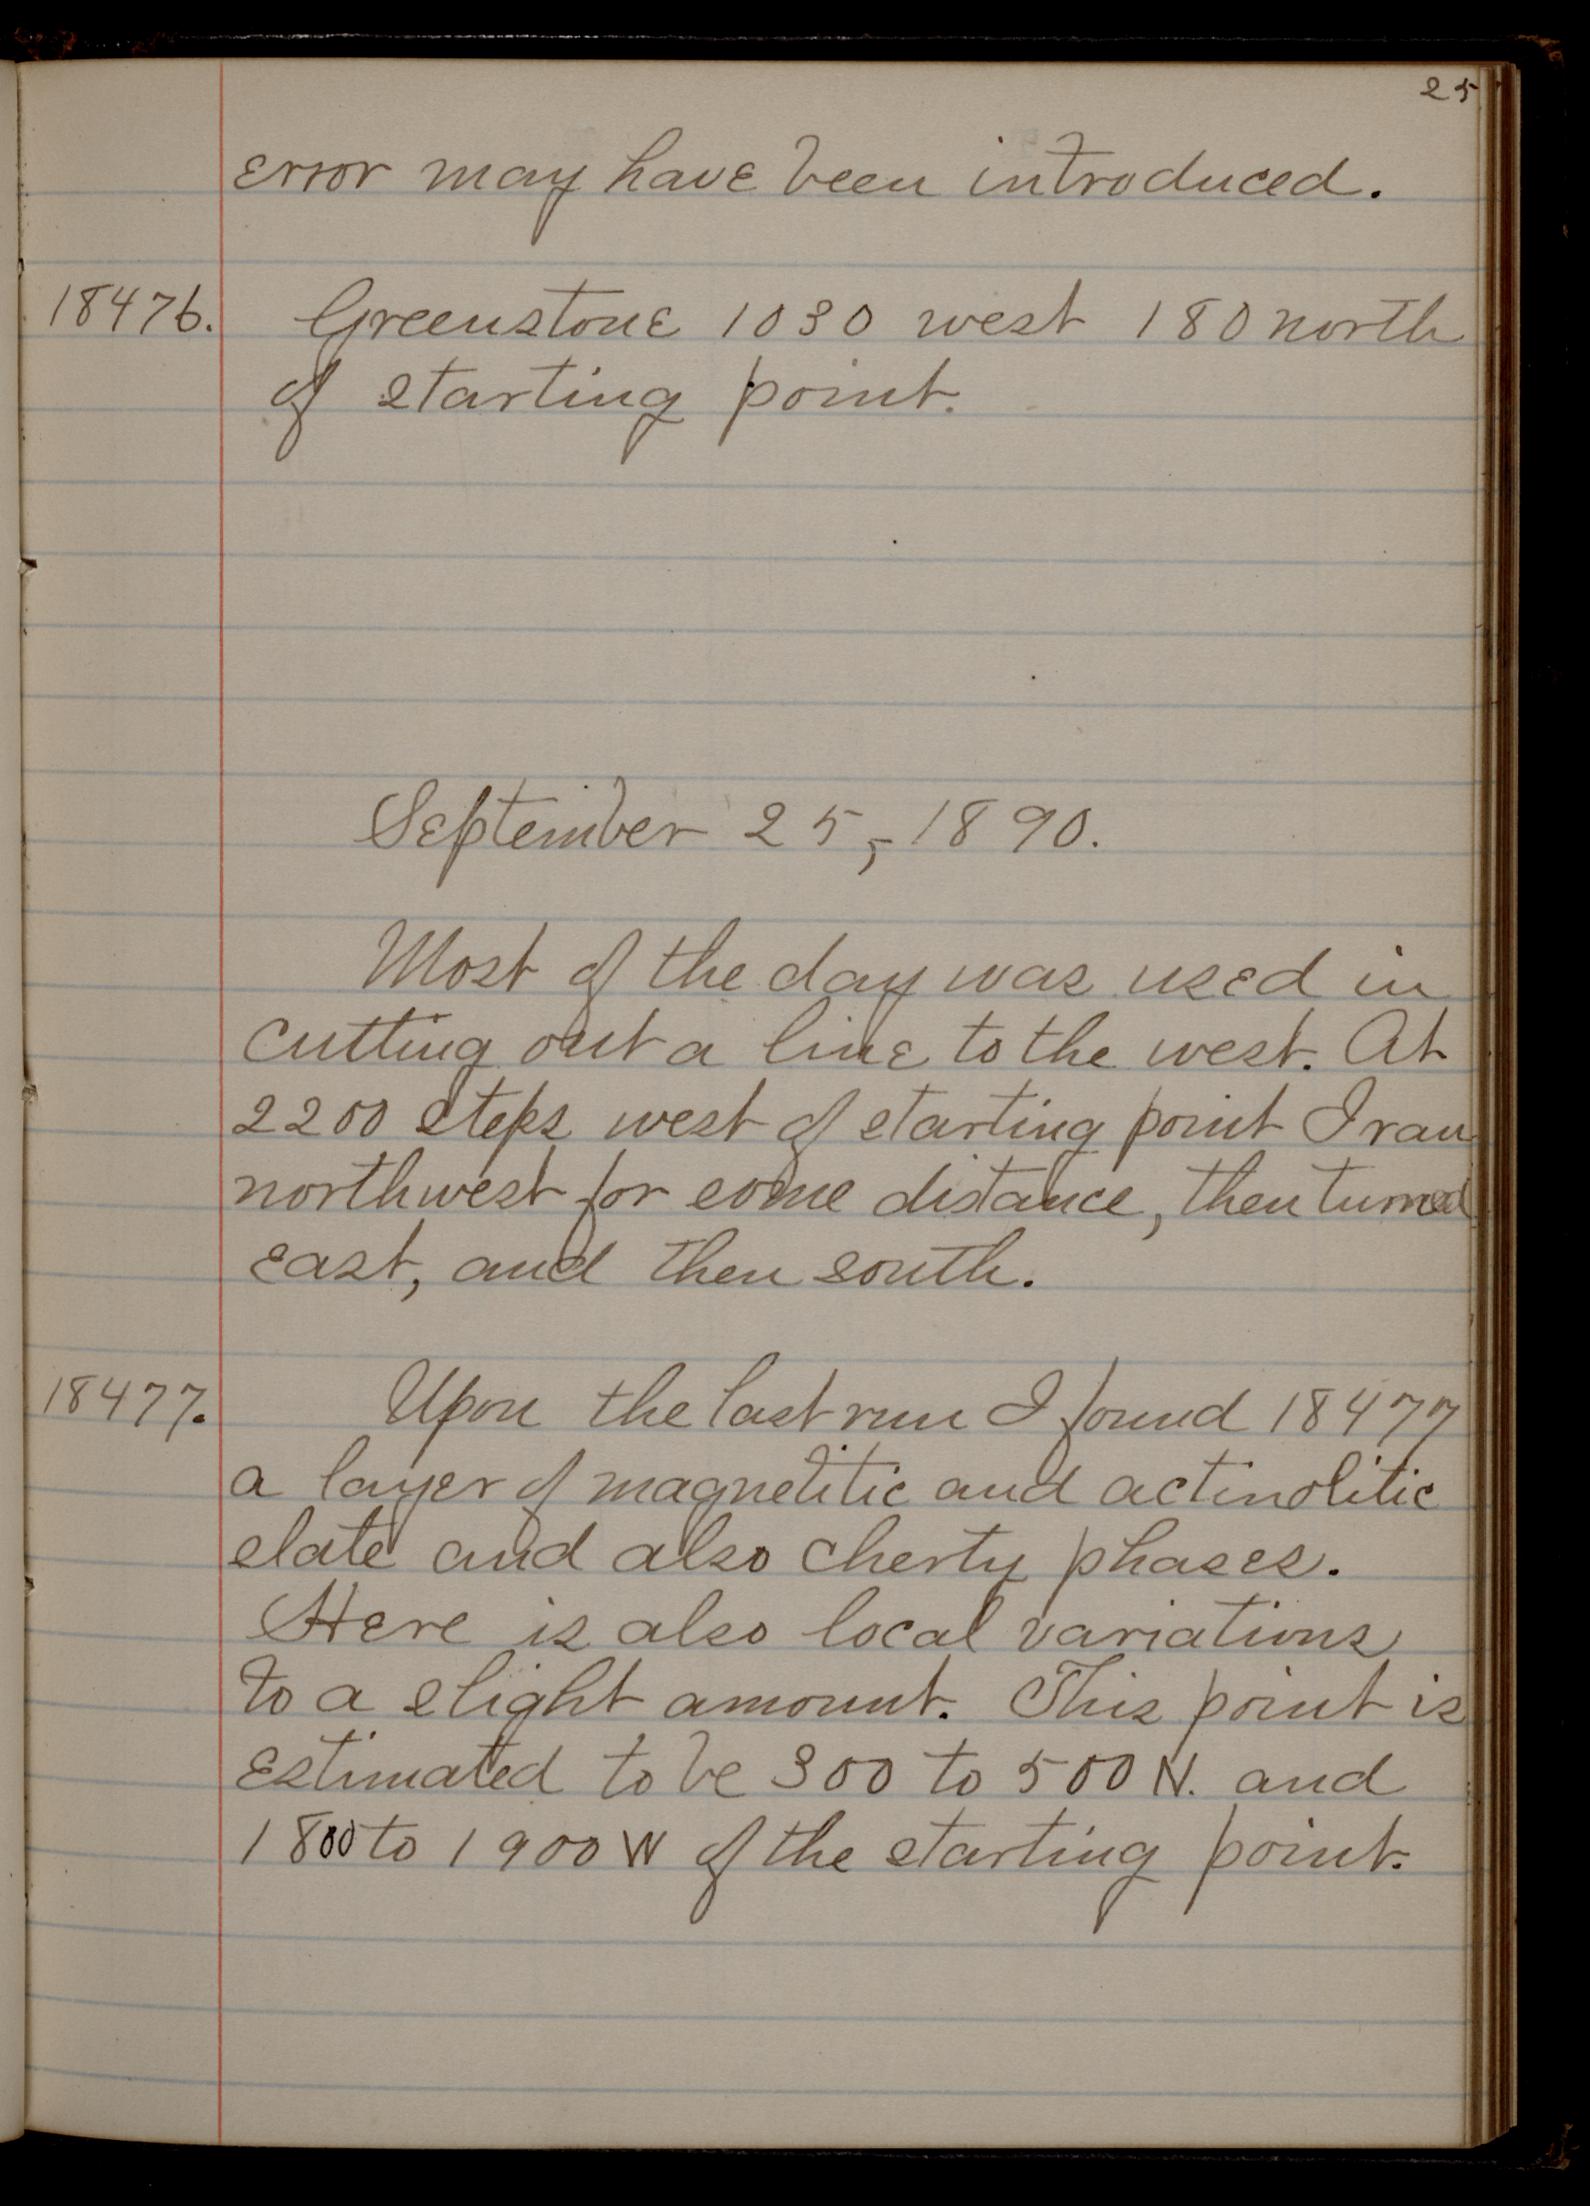 25
error may have been introduced.
18476. Greenstone 1030 west 180 north
of starting point.
September 25, 1890.
Most of the day was used in
cutting out a line to the west. At
2200 steps west of starting point I ran
northwest for some distance, then turned
east, and then south.
18477. Upon the last run I found 18477
a layer of magnetitic and actinolitic
slate and also cherty phases.
Here is also local variations
to a slight amount. This point is
estimated to be 300 to 500 N. and
1800 to 1900 W of the starting point.